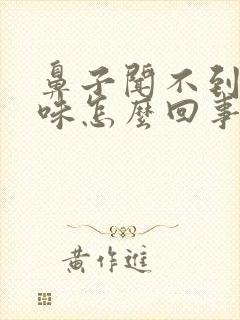 鼻子闻不到
味怎麽回事
黄作進